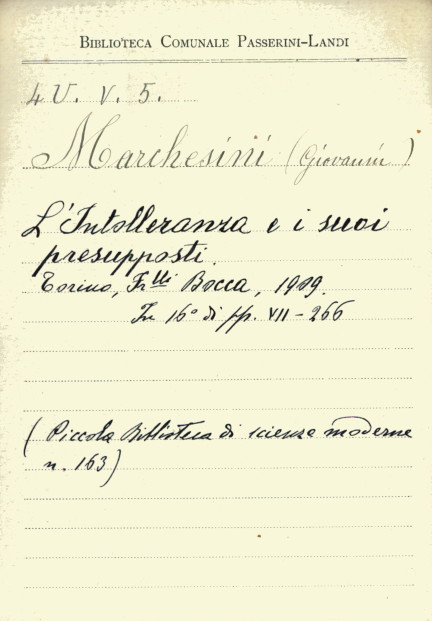 BIBLIOTECA COMUNALE PASSERINI-LANDI
4 U. V. 5.
Marchesini (Giovanni)
L'Intolleranza e i suoi
presupposti.
Torino, F.lli Bocca, 1909.
In 16° di pp. VII - 266
(Piccola Biblioteca di scienze moderne
n. 163)